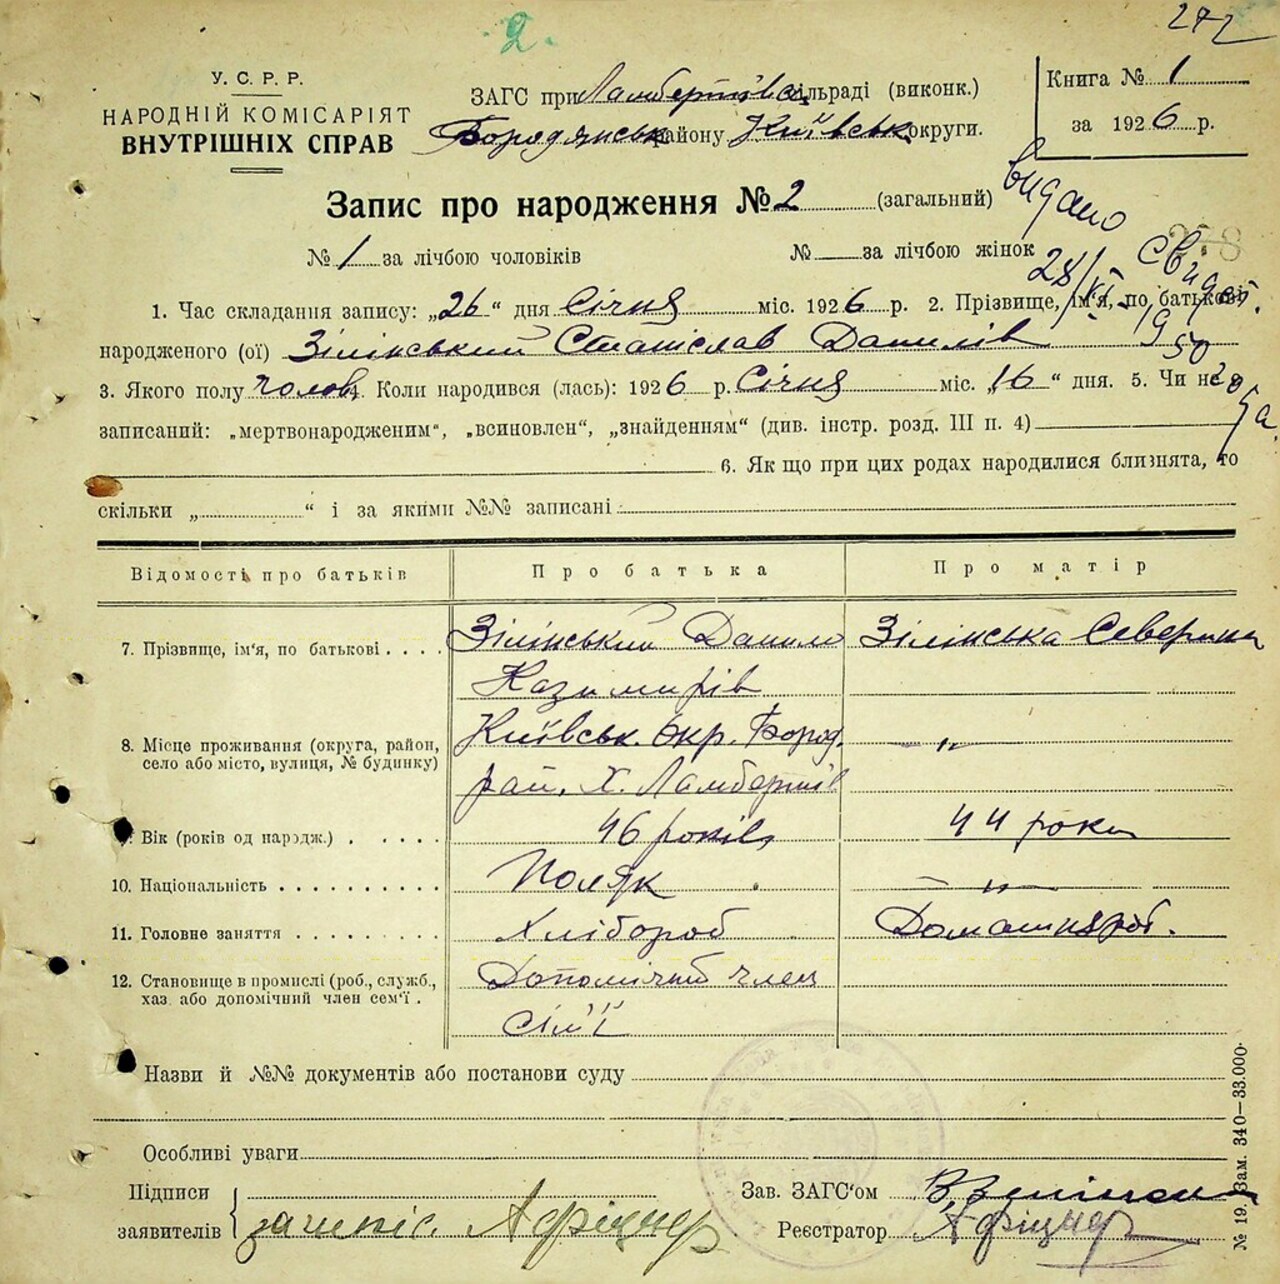 2.
272
У. С. Р. Р.
НАРОДНІЙ КОМІСАРІЯТ
ВНУТРІШНІХ СПРАВ
ЗАГС при Ламбертівськ сільраді (виконк.)
Бородянськ району Київськ округи.
Книга № 1
за 1926 р.
Запис про народження № 2 (загальний)
видано свидет.
28/VI-1950
№ 1 за лічбою чоловіків № за лічбою жінок
1. Час складання запису: „26“ дня Січня міс. 1926 р. 2. Прізвище, ім'я, по батькові
народженого (ої) Зілінський Станіслав Данилів
3. Якого полу чолов. Коли народився (лась): 1926 р. Січня міс. „16“ дня. 5. Чи не
записаний: „мертвонародженим“, „всиновлен“, „знайденням“ (див. інстр. розд. III п. 4)
6. Як що при цих родах народилися близнята, то
скільки „ “ і за якими №№ записані
Відомості про батьків Про батька Про матір
7. Прізвище, ім'я, по батькові . . . . Зілінський Данило Зілінська Северина
Казимирів
8. Місце проживання (округа, район, село або місто, вулиця, № будинку) Київськ. окр. Бород. -"-
рай. Х. Ламбертів
9. Вік (років од народж.) . . . . . 46 років 44 роки
10. Національність . . . . . . . . . . Поляк -"-
11. Головне заняття . . . . . . . . . Хлібороб Домашня роб.
12. Становище в промислі (роб., служб., хаз. або допомічний член сем'ї . Допомічний член
сім'ї
Назви й №№ документів або постанови суду
Особливі уваги
Підписи
заявителів
за непіс. Афіцнер
Зав. ЗАГС'ом
Реєстратор Афіцнер
№ 19. Зам. 340—33.000.